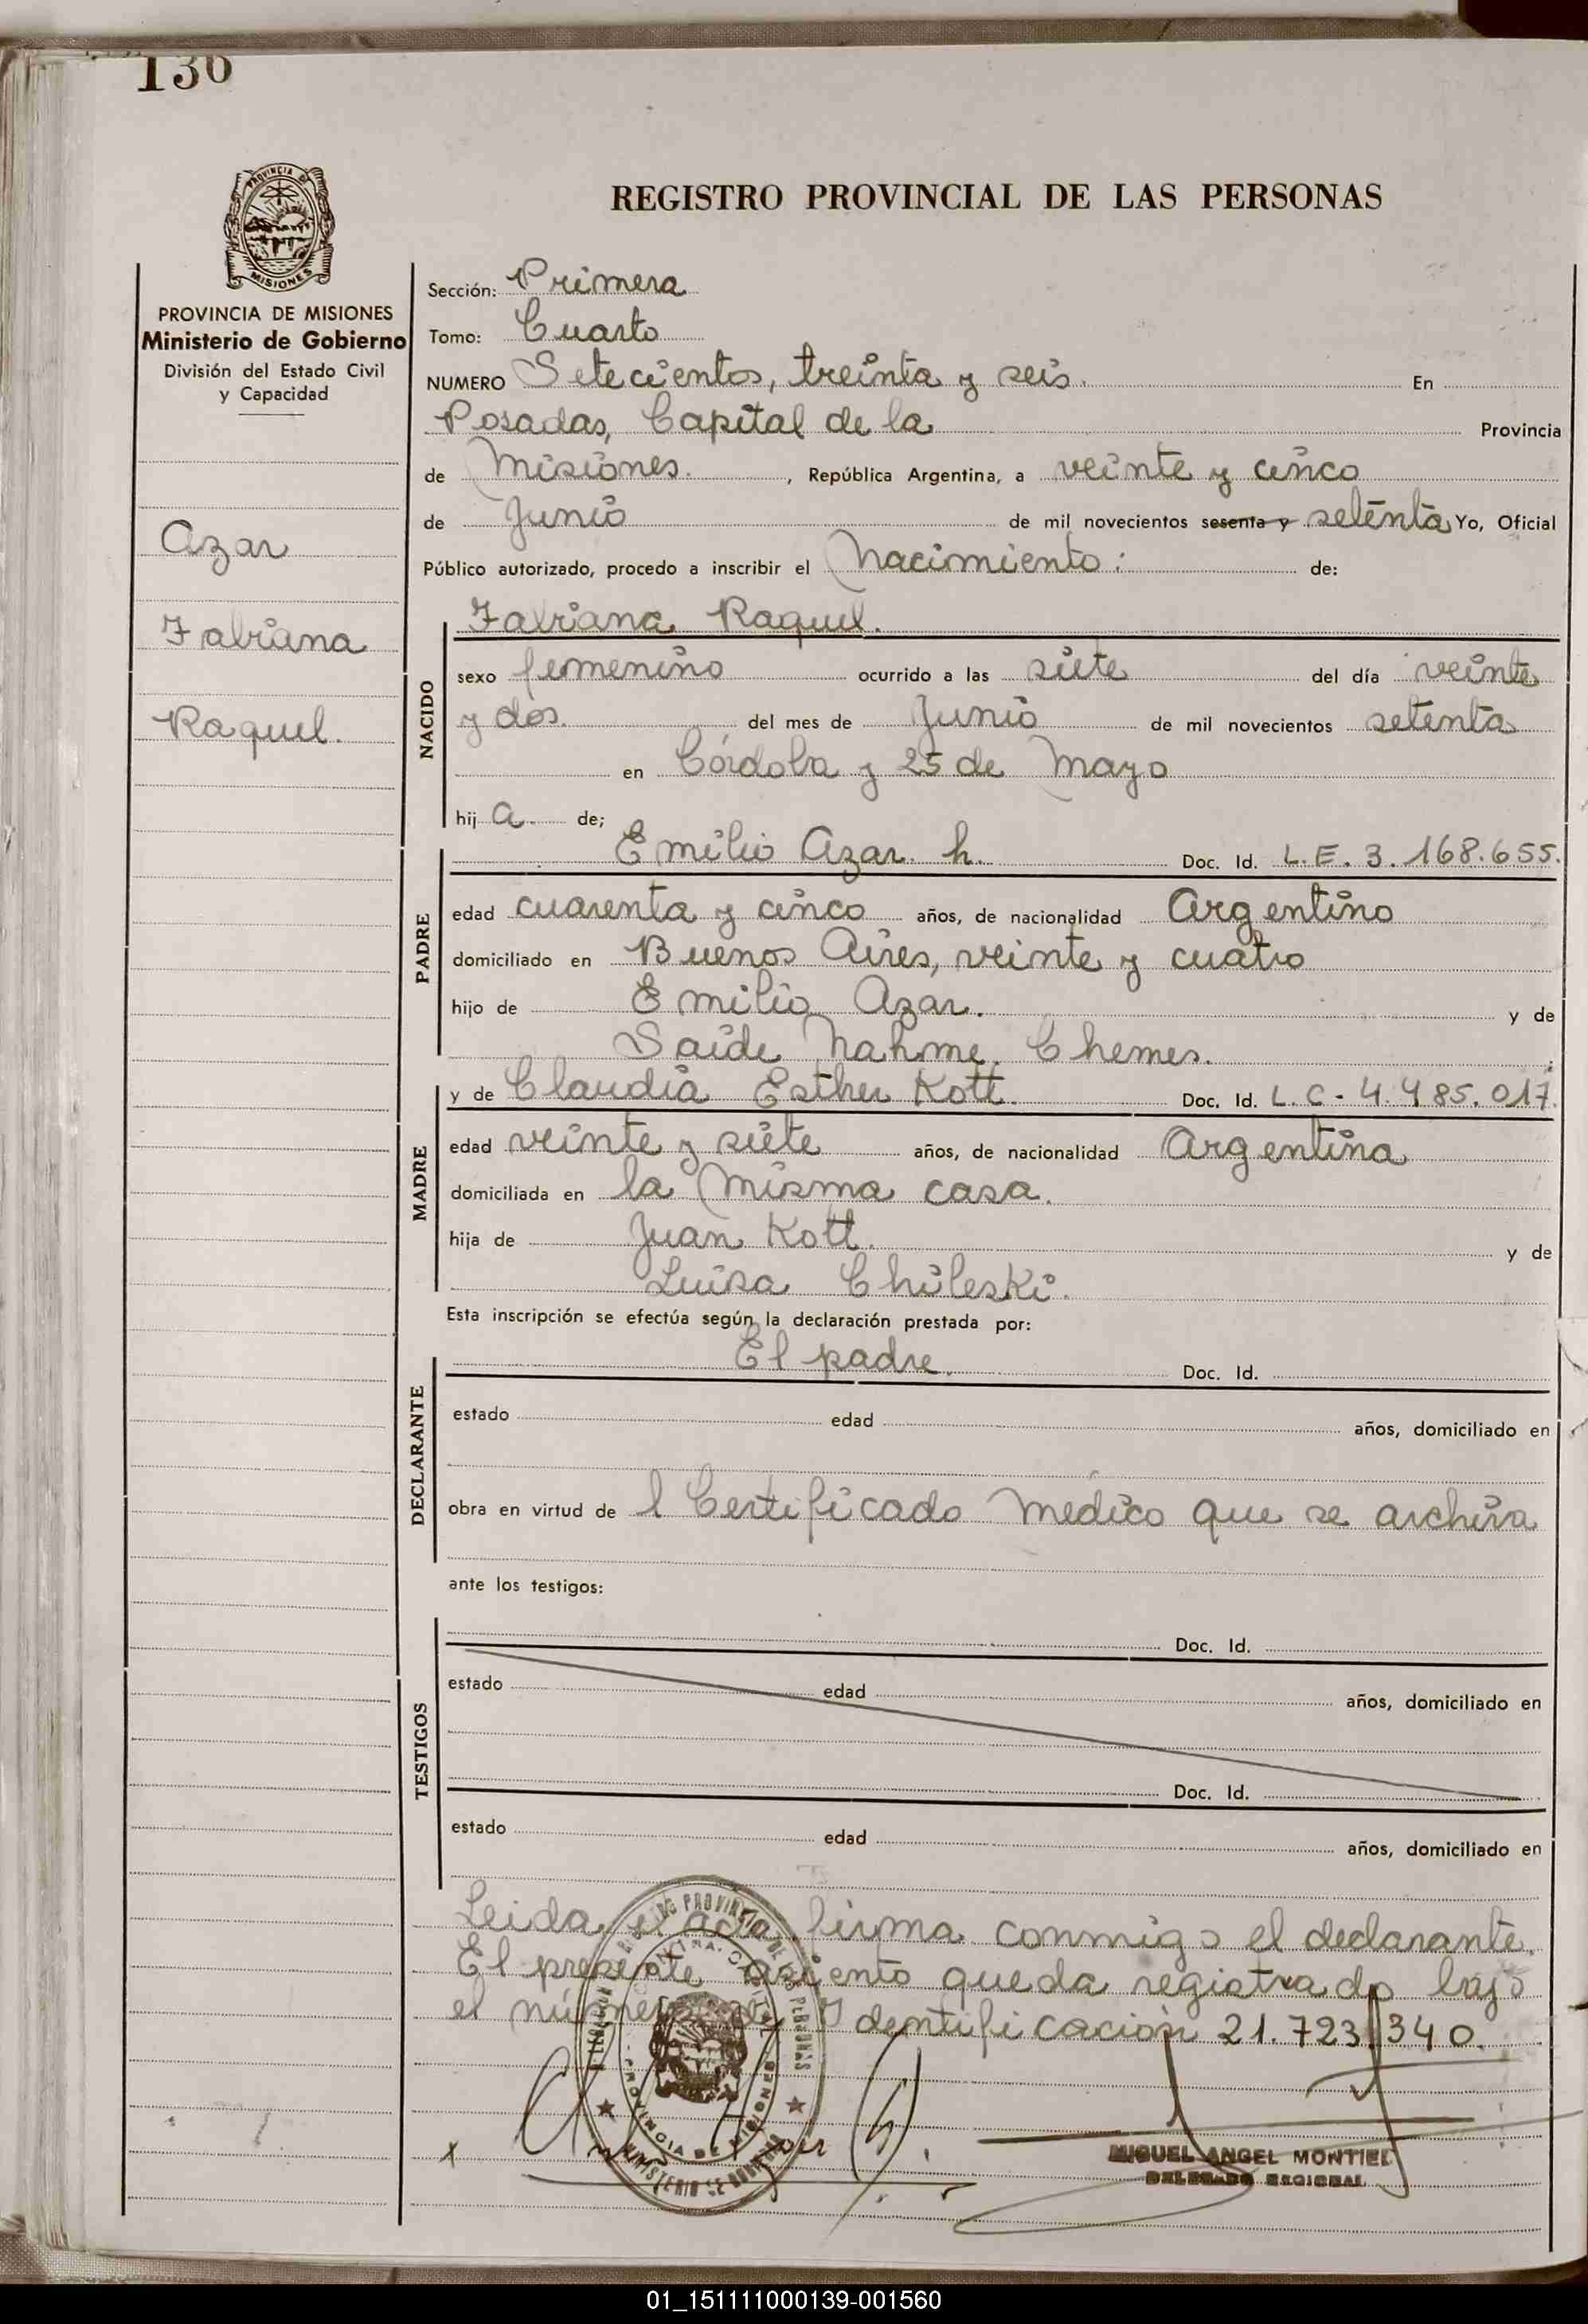 130
PROVINCIA DE
MISIONES
REGISTRO PROVINCIAL DE LAS PERSONAS
PROVINCIA DE MISIONES
Ministerio de Gobierno
División del Estado Civil
y Capacidad
Azar
Fabriana
Raquel.
Sección: Primera
Tomo: Cuarto
NUMERO Setecientos, treinta y seis. En
Posadas, Capital de la Provincia
de Misiones. , República Argentina, a veinte y cinco
de Junio de mil novecientos sesenta y setenta Yo, Oficial
Público autorizado, procedo a inscribir el Nacimiento: de:
NACIDO
Fabriana Raquel.
sexo femenino ocurrido a las siete del día veinte
y dos. del mes de Junio de mil novecientos setenta
en Córdoba y 25 de Mayo
hij a. de;
PADRE
Emilio Azar h. Doc. Id. L.E. 3.168.655.
edad cuarenta y cinco años, de nacionalidad Argentino
domiciliado en Buenos Aires, veinte y cuatro
hijo de Emilio Azar. y de
Saide Nahme Chemes. ;
MADRE
y de Claudia Esther Kott. Doc. Id. L.C - 4.485.017.
edad veinte y siete años, de nacionalidad Argentina
domiciliada en la misma casa.
hija de Juan Kott. y de
Luisa Chileski.
Esta inscripción se efectúa según la declaración prestada por:
DECLARANTE
El padre. Doc. Id.
estado edad años, domiciliado en
obra en virtud de l Certificado médico que se archiva
ante los testigos:
TESTIGOS
Doc. Id.
estado edad años, domiciliado en
Doc. Id.
estado edad años, domiciliado en
Leida el acta firma conmigo el declarante.
El presente asiento queda registrado bajo
el número de Identificación 21.723.340.
MIGUEL ANGEL MONTIEL
DELEGADO REGIONAL
01_151111000139-001560